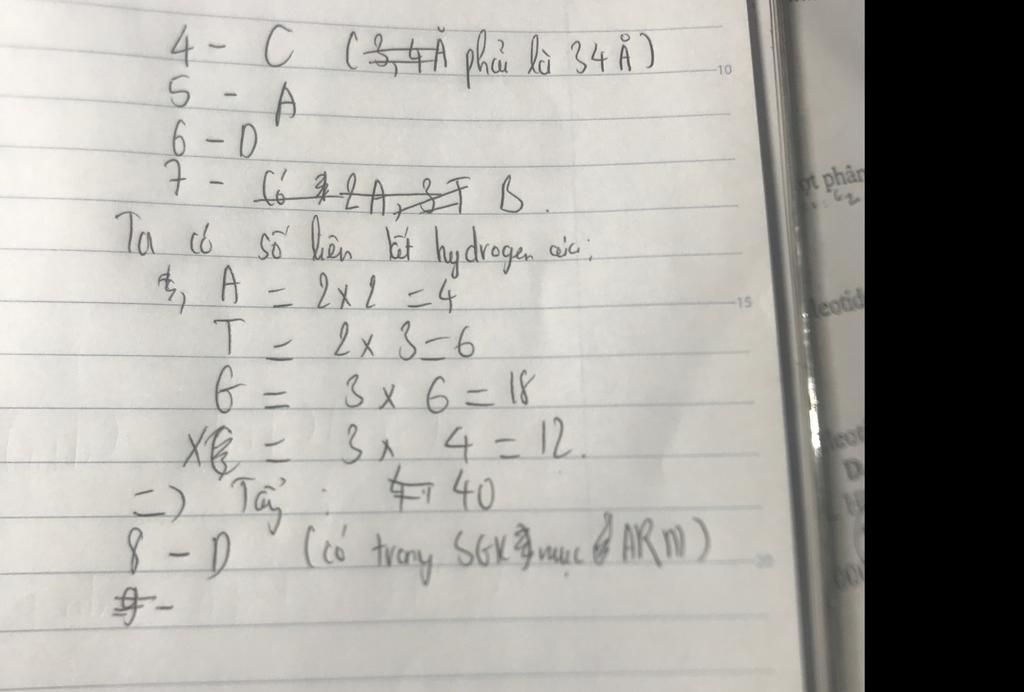 4 - C (3,4Å phải là 34 Å)
10
5 - A
6 - D
7 - Có 2A, 3T B.
Ta có số liên kết hydrogen các:
A = 2 x 2 = 4
15
T = 2 x 3 = 6
G = 3 x 6 = 18
X = 3 x 4 = 12.
=) Tổng: 40
8 - D (có trong SGK mục ARN)
20
9 -
ợt phân
leotid
leot
D